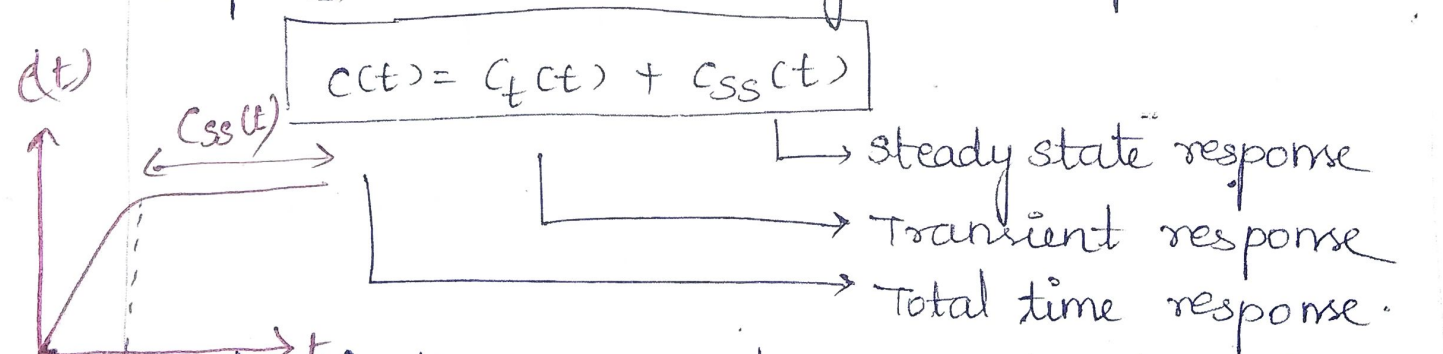 C(t) = Ct(t) + Css(t)
c(t)
Css(t)
steady state response
Transient response
Total time response.
t